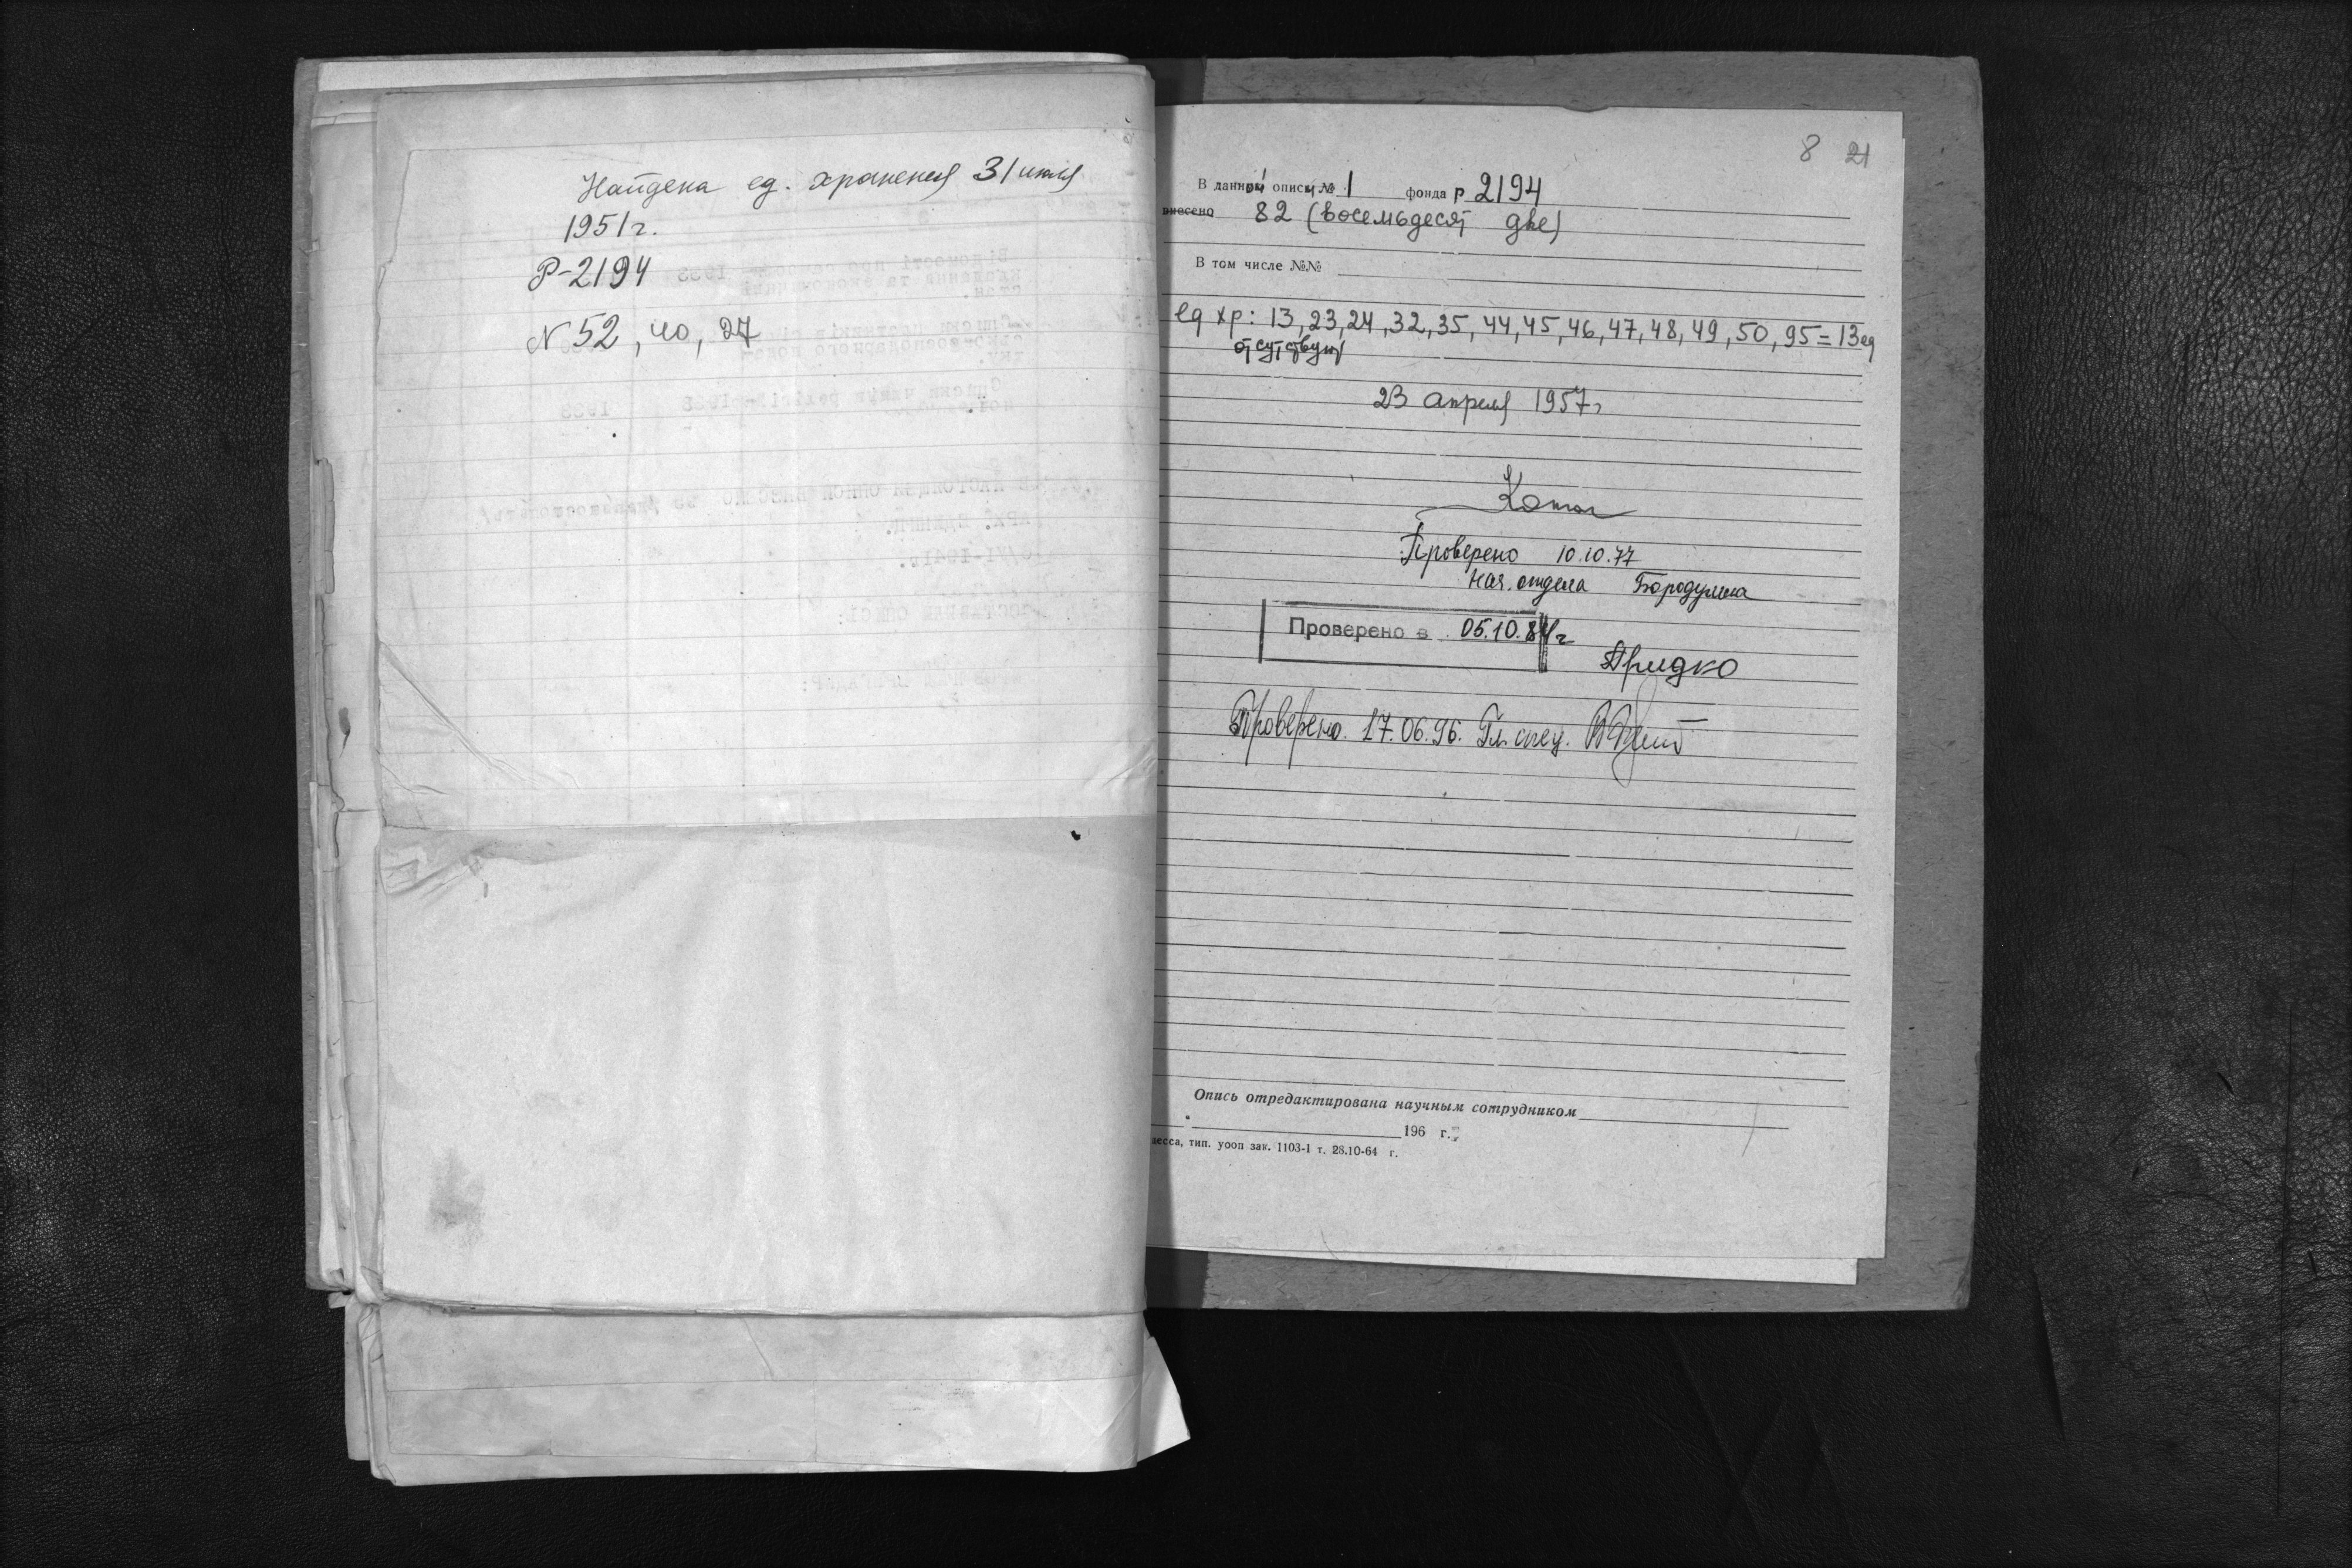 Найдена ед. хранения 31 июля
1951 г.
Р-2194
N 52, 40, 27
8 21
В данной описи № 1 фонда Р 2194
внесено 82 (восемьдесят две)
В том числе №№
ед хр: 13, 23, 24, 32, 35, 44, 45, 46, 47, 48, 49, 50, 95 = 13 ед
отсутствуют
23 апреля 1957 г
Проверено 10.10.77
Нач. отдела Бородулина
Проверено в 05.10.84 г
Проверено. 17.06.96. Гл. спец.
Опись отредактирована научным сотрудником
196 г.
есса, тип. уооп зак. 1103-1 т. 28.10-64 г.